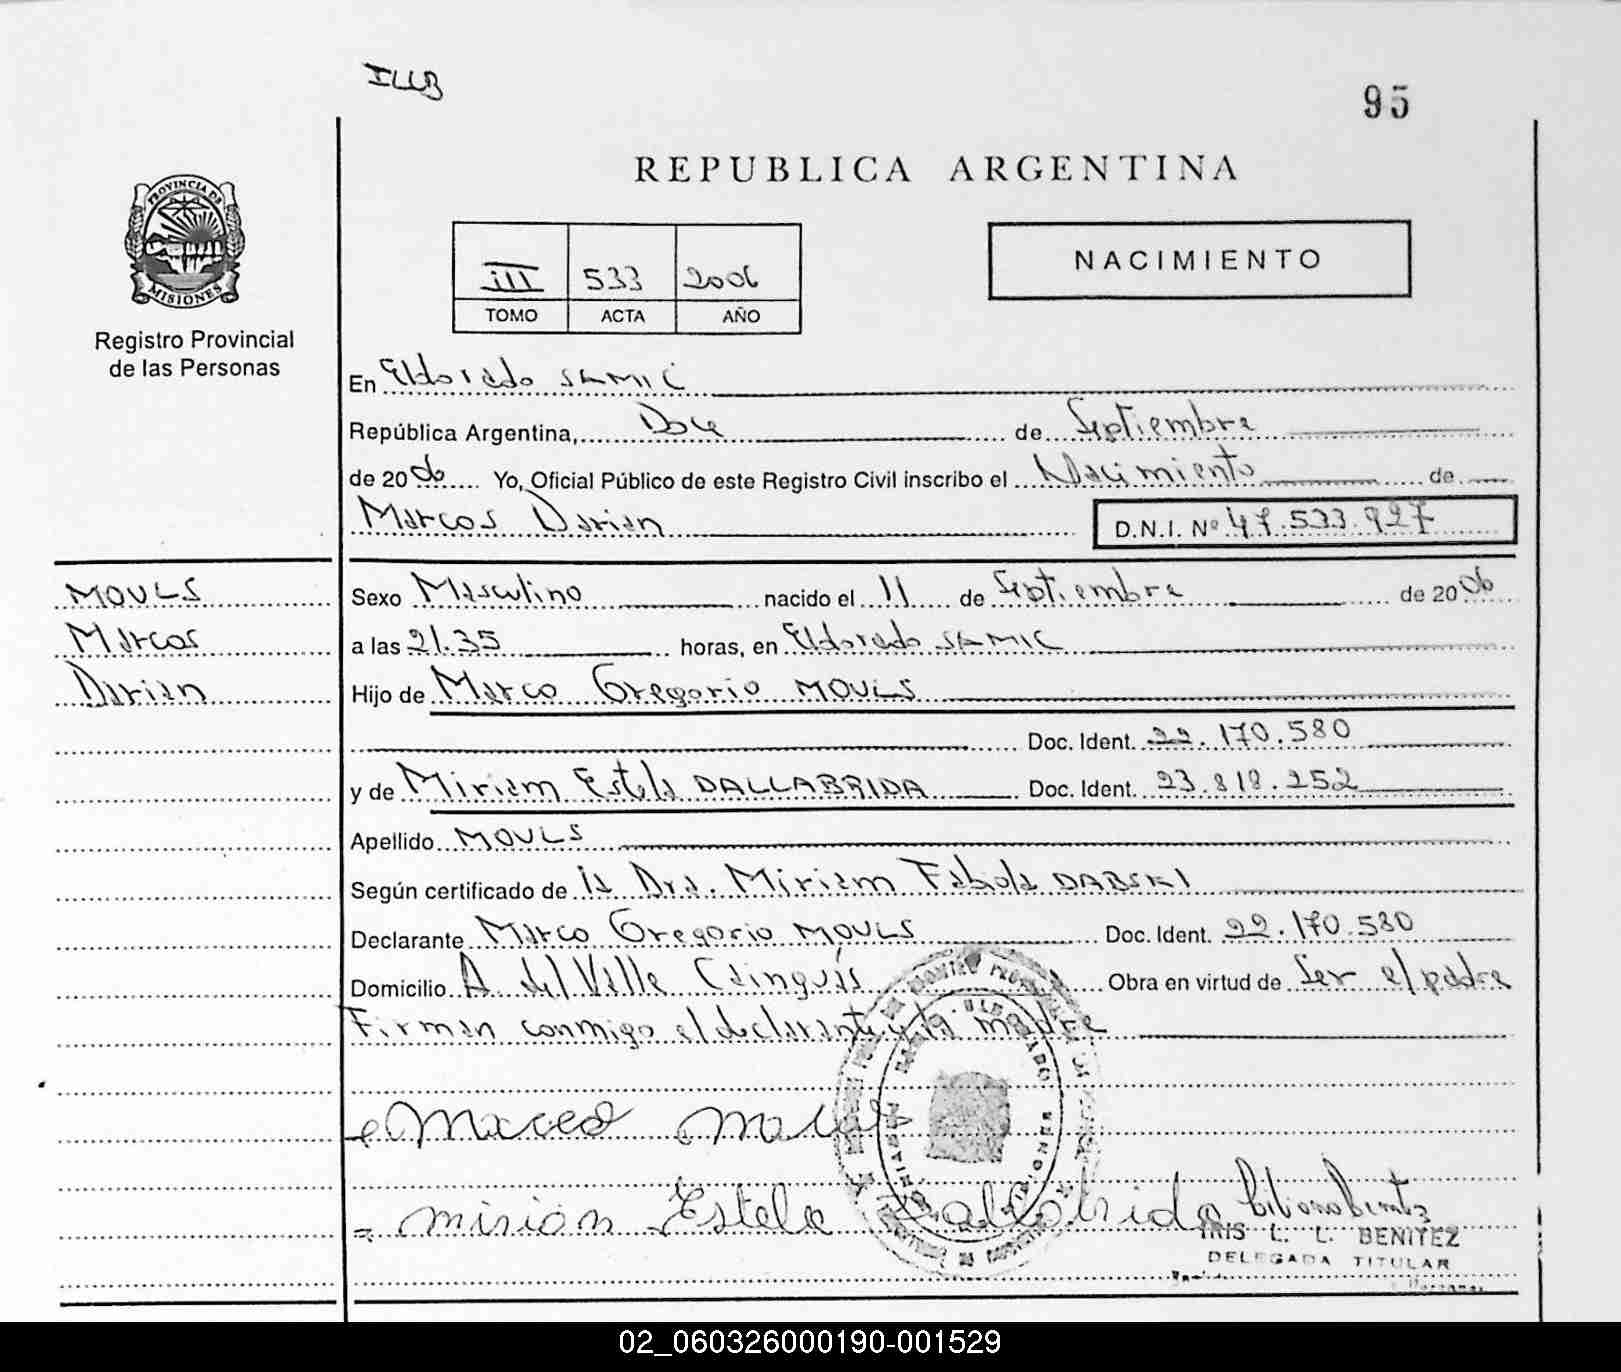 ILLB
95
REPUBLICA ARGENTINA
PROVINCIA DE
MISIONES
Registro Provincial
de las Personas
III 533 2006
TOMO ACTA AÑO
NACIMIENTO
En Eldorado SAMIC
República Argentina, Doce de Septiembre
de 2006 Yo, Oficial Público de este Registro Civil inscribo el Nacimiento de
Marcos Darian D.N.I. Nº 47.533.927
MOULS
Marcos
Darian
Sexo Masculino nacido el 11 de Septiembre de 2006
a las 21.35 horas, en Eldorado SAMIC
Hijo de Marco Gregorio MOULS
Doc. Ident. 22.170.580
y de Miriam Estela DALLABRIDA Doc. Ident. 23.818.252
Apellido MOULS
Según certificado de la Dra. Miriam Fabiola DABSKI
Declarante Marco Gregorio MOULS Doc. Ident. 22.170.580
Domicilio A. del Valle Cainguás Obra en virtud de Ser el padre
Firman conmigo el declarante y la madre
Miriam Estela Dallabrida
IRIS L. L. BENITEZ
DELEGADA TITULAR
02_060326000190-001529